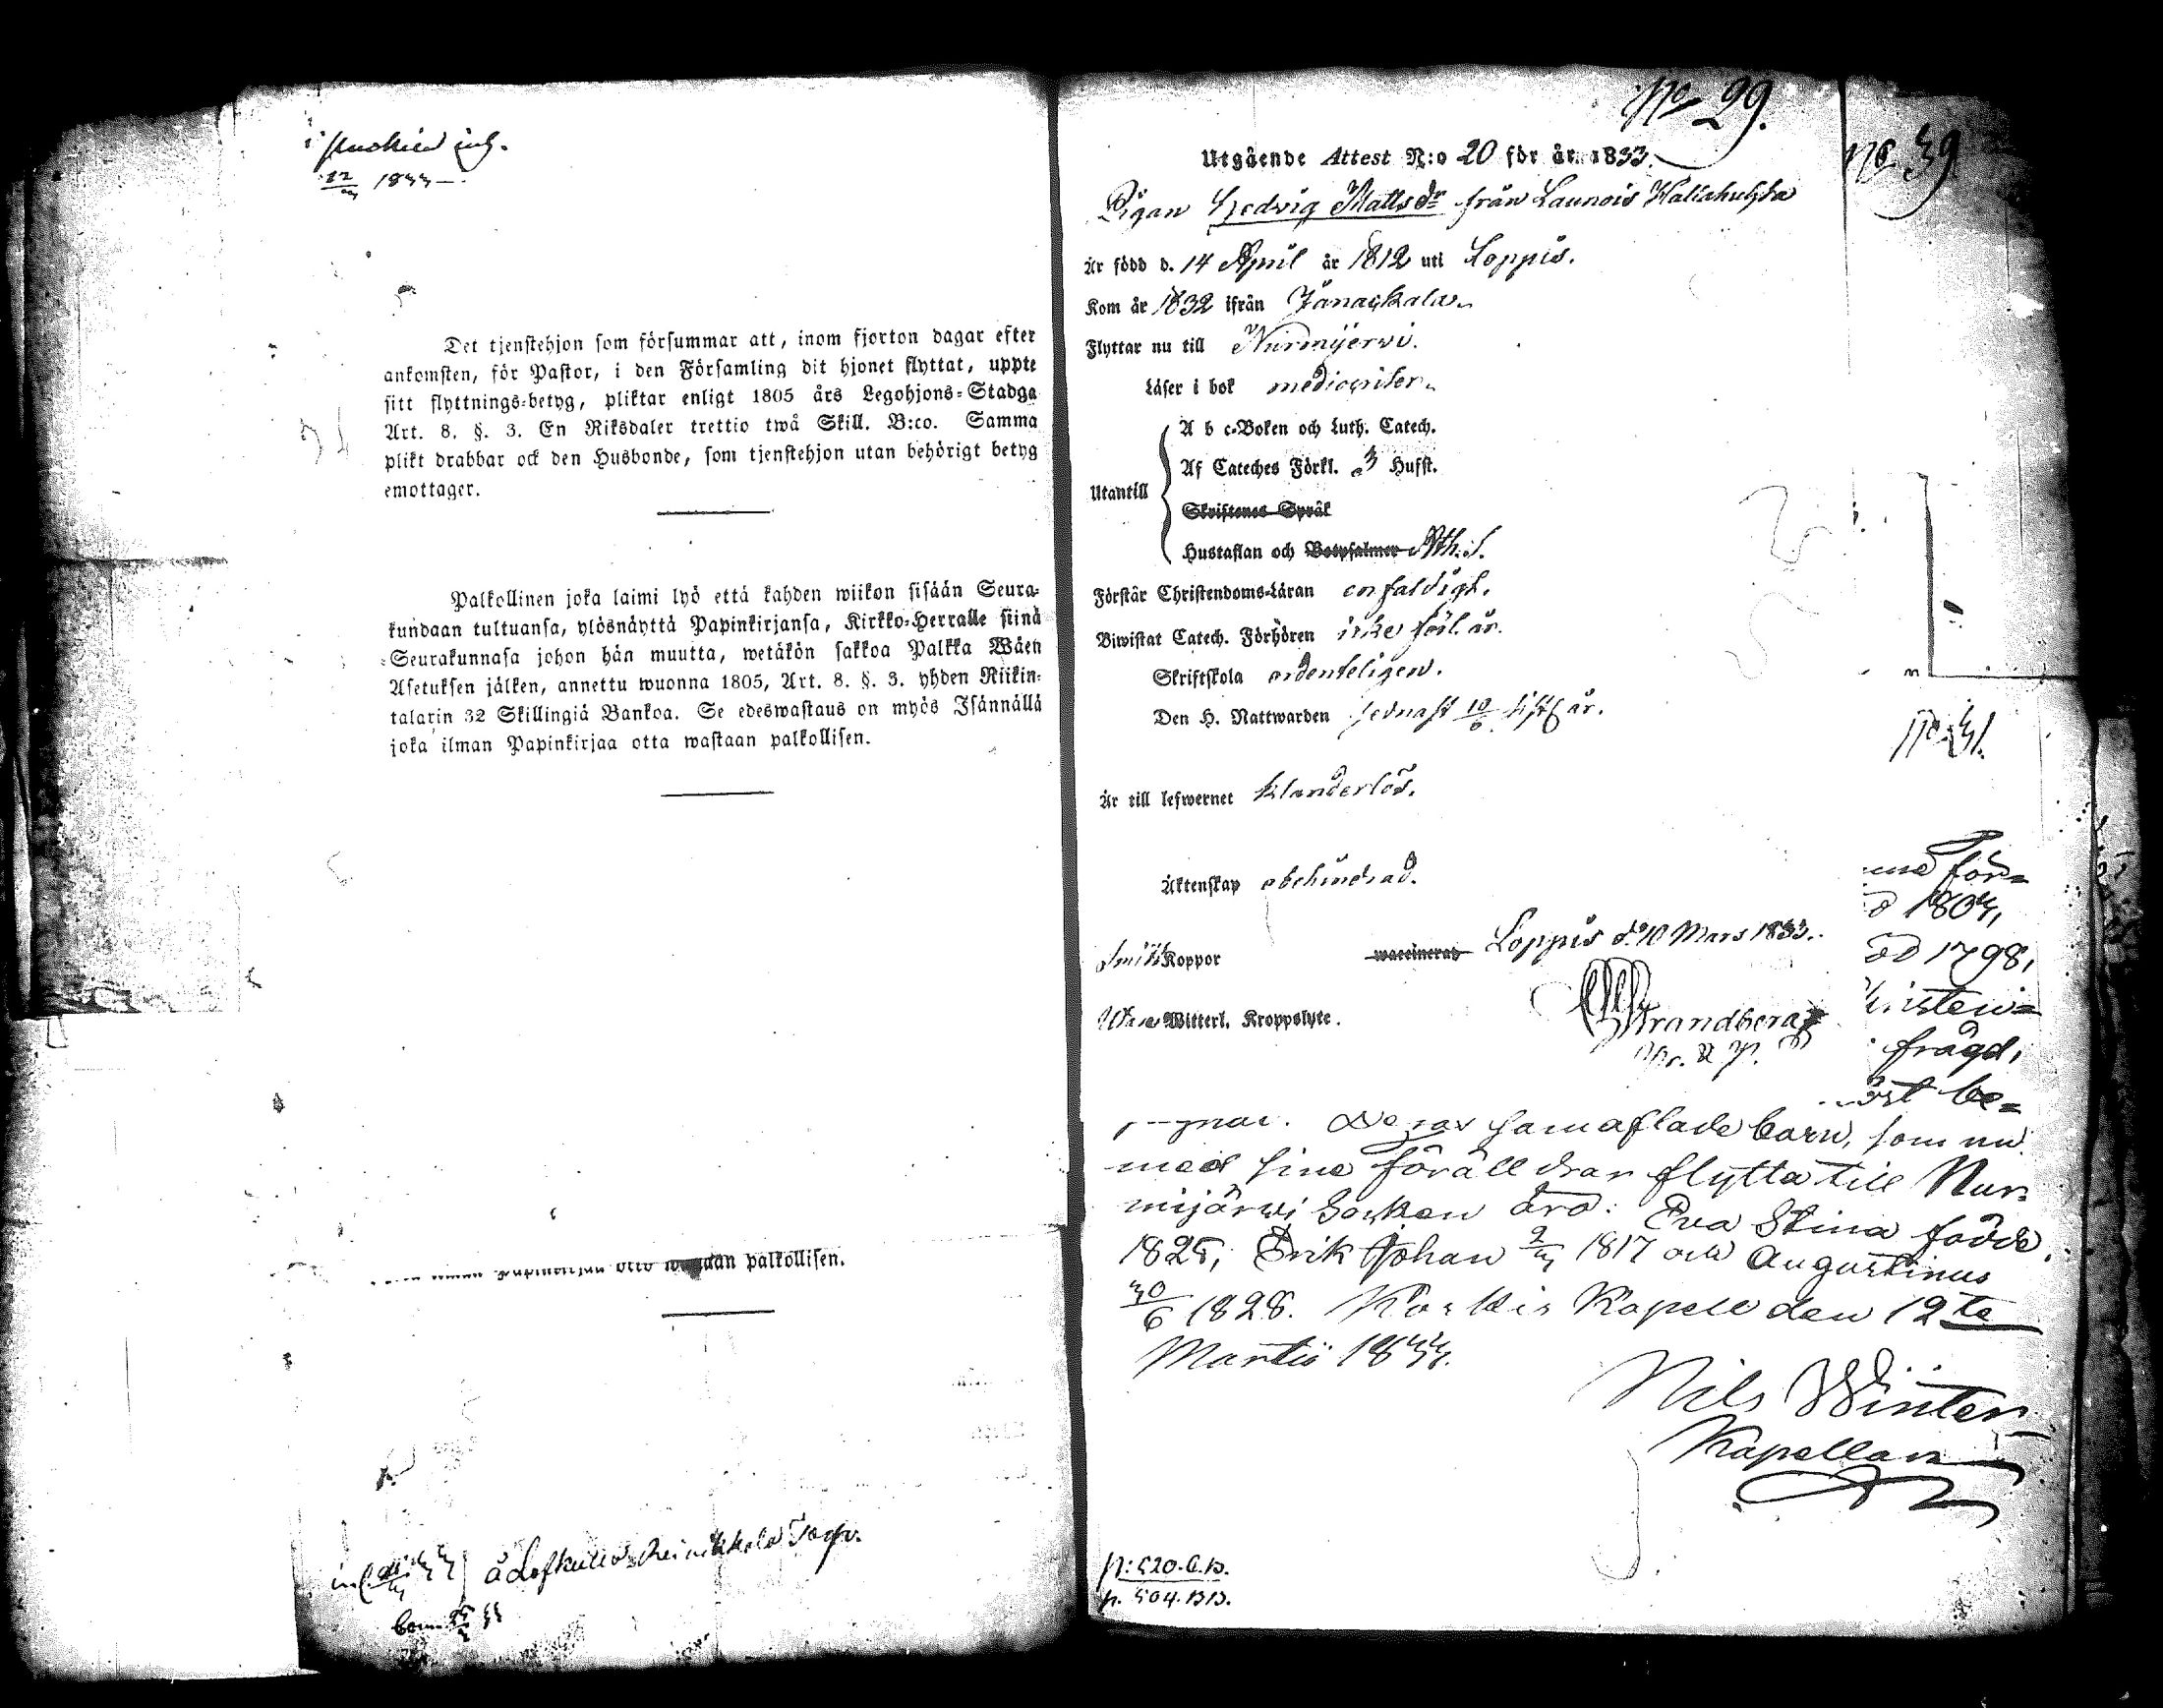 1833
Det tjenstehjon som försummar att, inom fjorton dagar efter
ankomsten, för Pastor, i den Församling dit hjonet flyttat, uppte
sitt flyttnings-betyg, pliktar enligt 1805 års Legohjons-Stadga
Art. 8. §. 3. En Riksdaler trettio twå Skill. B:co. Samma
plikt drabbar ock den Husbonde, som tjenstehjon utan behörigt betyg
emottager.
Palkollinen joka laimi lyö että kahden wiikon sisään Seura-
kundaan tultuansa, ylösnäyttä Papinkirjansa, Kirkko-Herralle siinä
Seurakunnasa johon hän muutta, wetäkön sakkoa Palkka Wäen
Asetuksen jälken, annettu wuonna 1805, Art. 8. §. 3. yhden Riikin-
talarin 32 Skillingiä Bankoa. Se edeswastaus on myös Isännällä
joka ilman Papinkirjaa otta wastaan palkollisen.
palkollisen.
No 29.
No 39
Utgående Attest N:o 20 för år 1833.
Pigan Hedvig Mattsdr från Launois
är född d. 14 April år 1812 uti Loppis.
Kom år 1832 ifrån Janackala
Flyttar nu till Nurmijerwi.
Läser i bok
Utantill
A b c-Boken och Luth. Catech.
Af Cateches Förkl. 3 Hufst.
Skriftenes Språk
Hustaflan och Botpsalmer Ath. S.
Förstår Christendoms-Läran enfaldigt.
Biwistat Catech. Förhören icke förl. år.
Skriftskola ordenteligen.
Den H. Nattwarden sednast 10/6 sistl. år.
No 31.
Är till lefwernet klanderlös.
Äktenskap obehindrad.
Koppor waccinerad Loppis d. 10 Mars 1833.
Witterl. Kroppslyte.
Strandberg
för=
1803,
1798,
frägd,
be=
barn, som nu
med sine föräldrar flytta till Nur=
mijärwi Socken äro: Eva Stina födde
1825, Erik Johan 2/3 1817 och Augustinus
30/6 1828. Kapell den 12te
Martii 1833.
Nils Winter
Kapellan
p. 520. C.B.
p. 504. B.B.